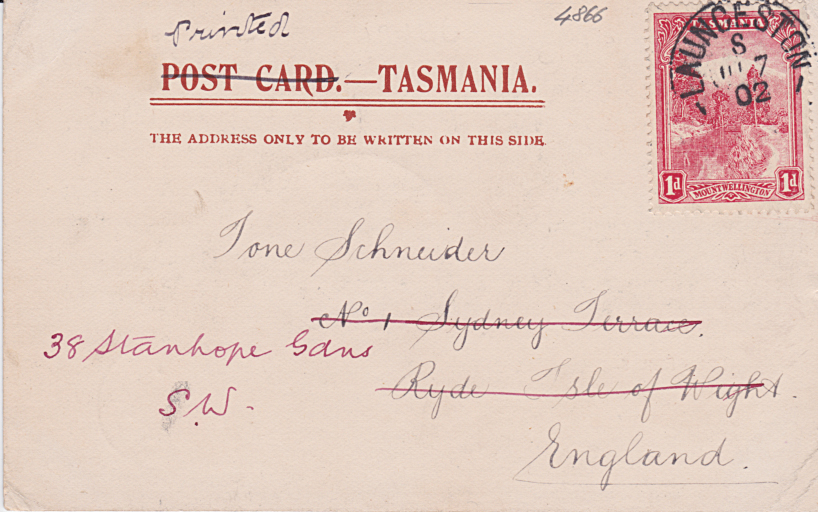 Printed
4866
POST CARD.—TASMANIA.
THE ADDRESS ONLY TO BE WRITTEN ON THIS SIDE.
TASMANIA
LAUNCESTON
S
7
02
1d
MOUNT WELLINGTON
1d
Ione Schneider
No 1 Sydney Terrace.
38 Stanhope Gdns
Ryde Isle of Wight.
S.W.
England.